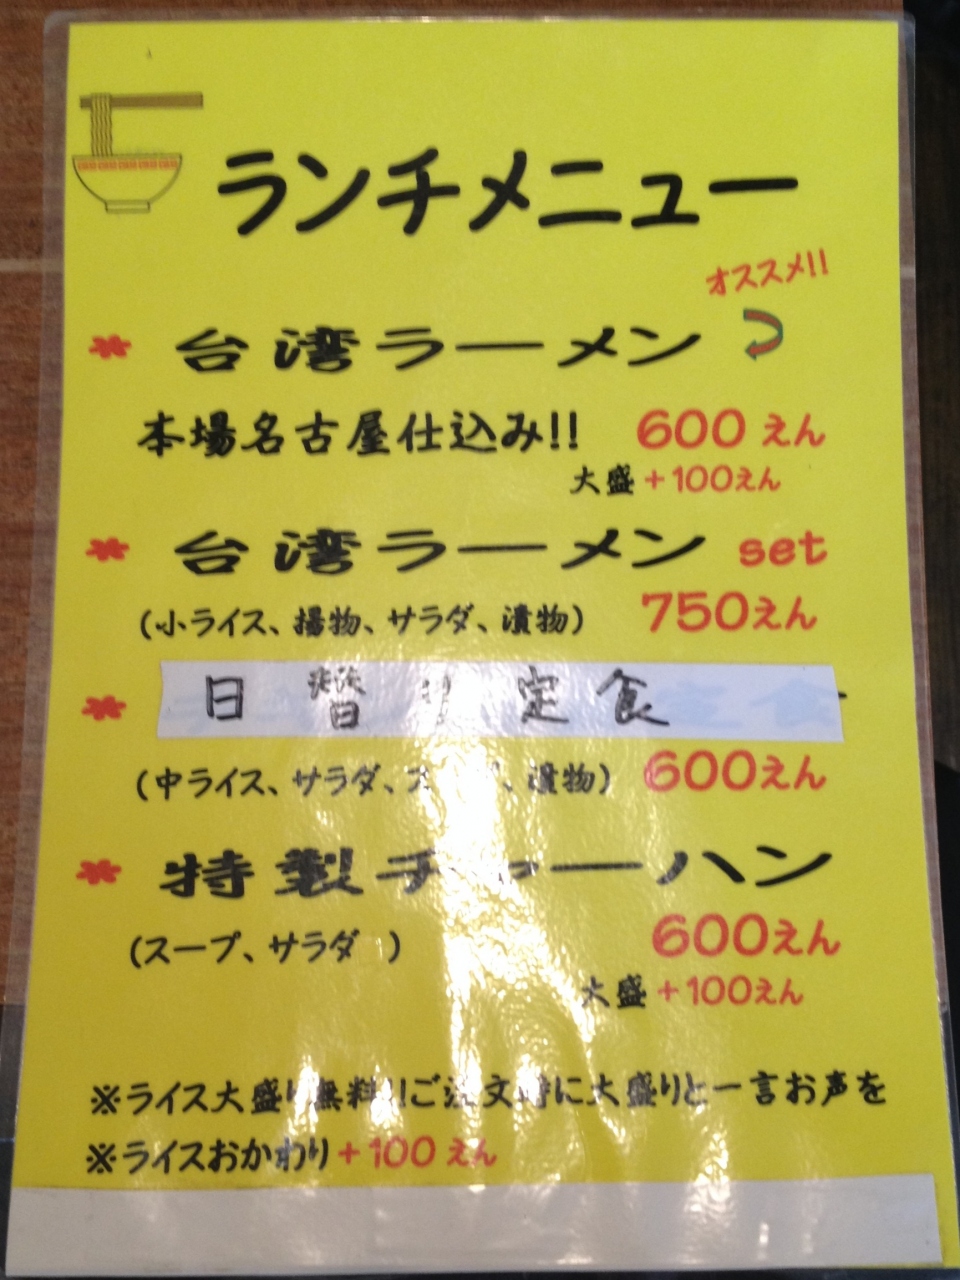 ランチメニュー
オススメ!!
台湾ラーメン
本場名古屋仕込み!! 600えん
大盛+100えん
台湾ラーメン set
(小ライス、揚物、サラダ、漬物) 750えん
日替り定食
(中ライス、サラダ、 、漬物) 600えん
特製チャーハン
(スープ、サラダ ) 600えん
大盛+100えん
※ライス大盛り無料!!ご注文時に大盛りと一言お声を
※ライスおかわり+100えん